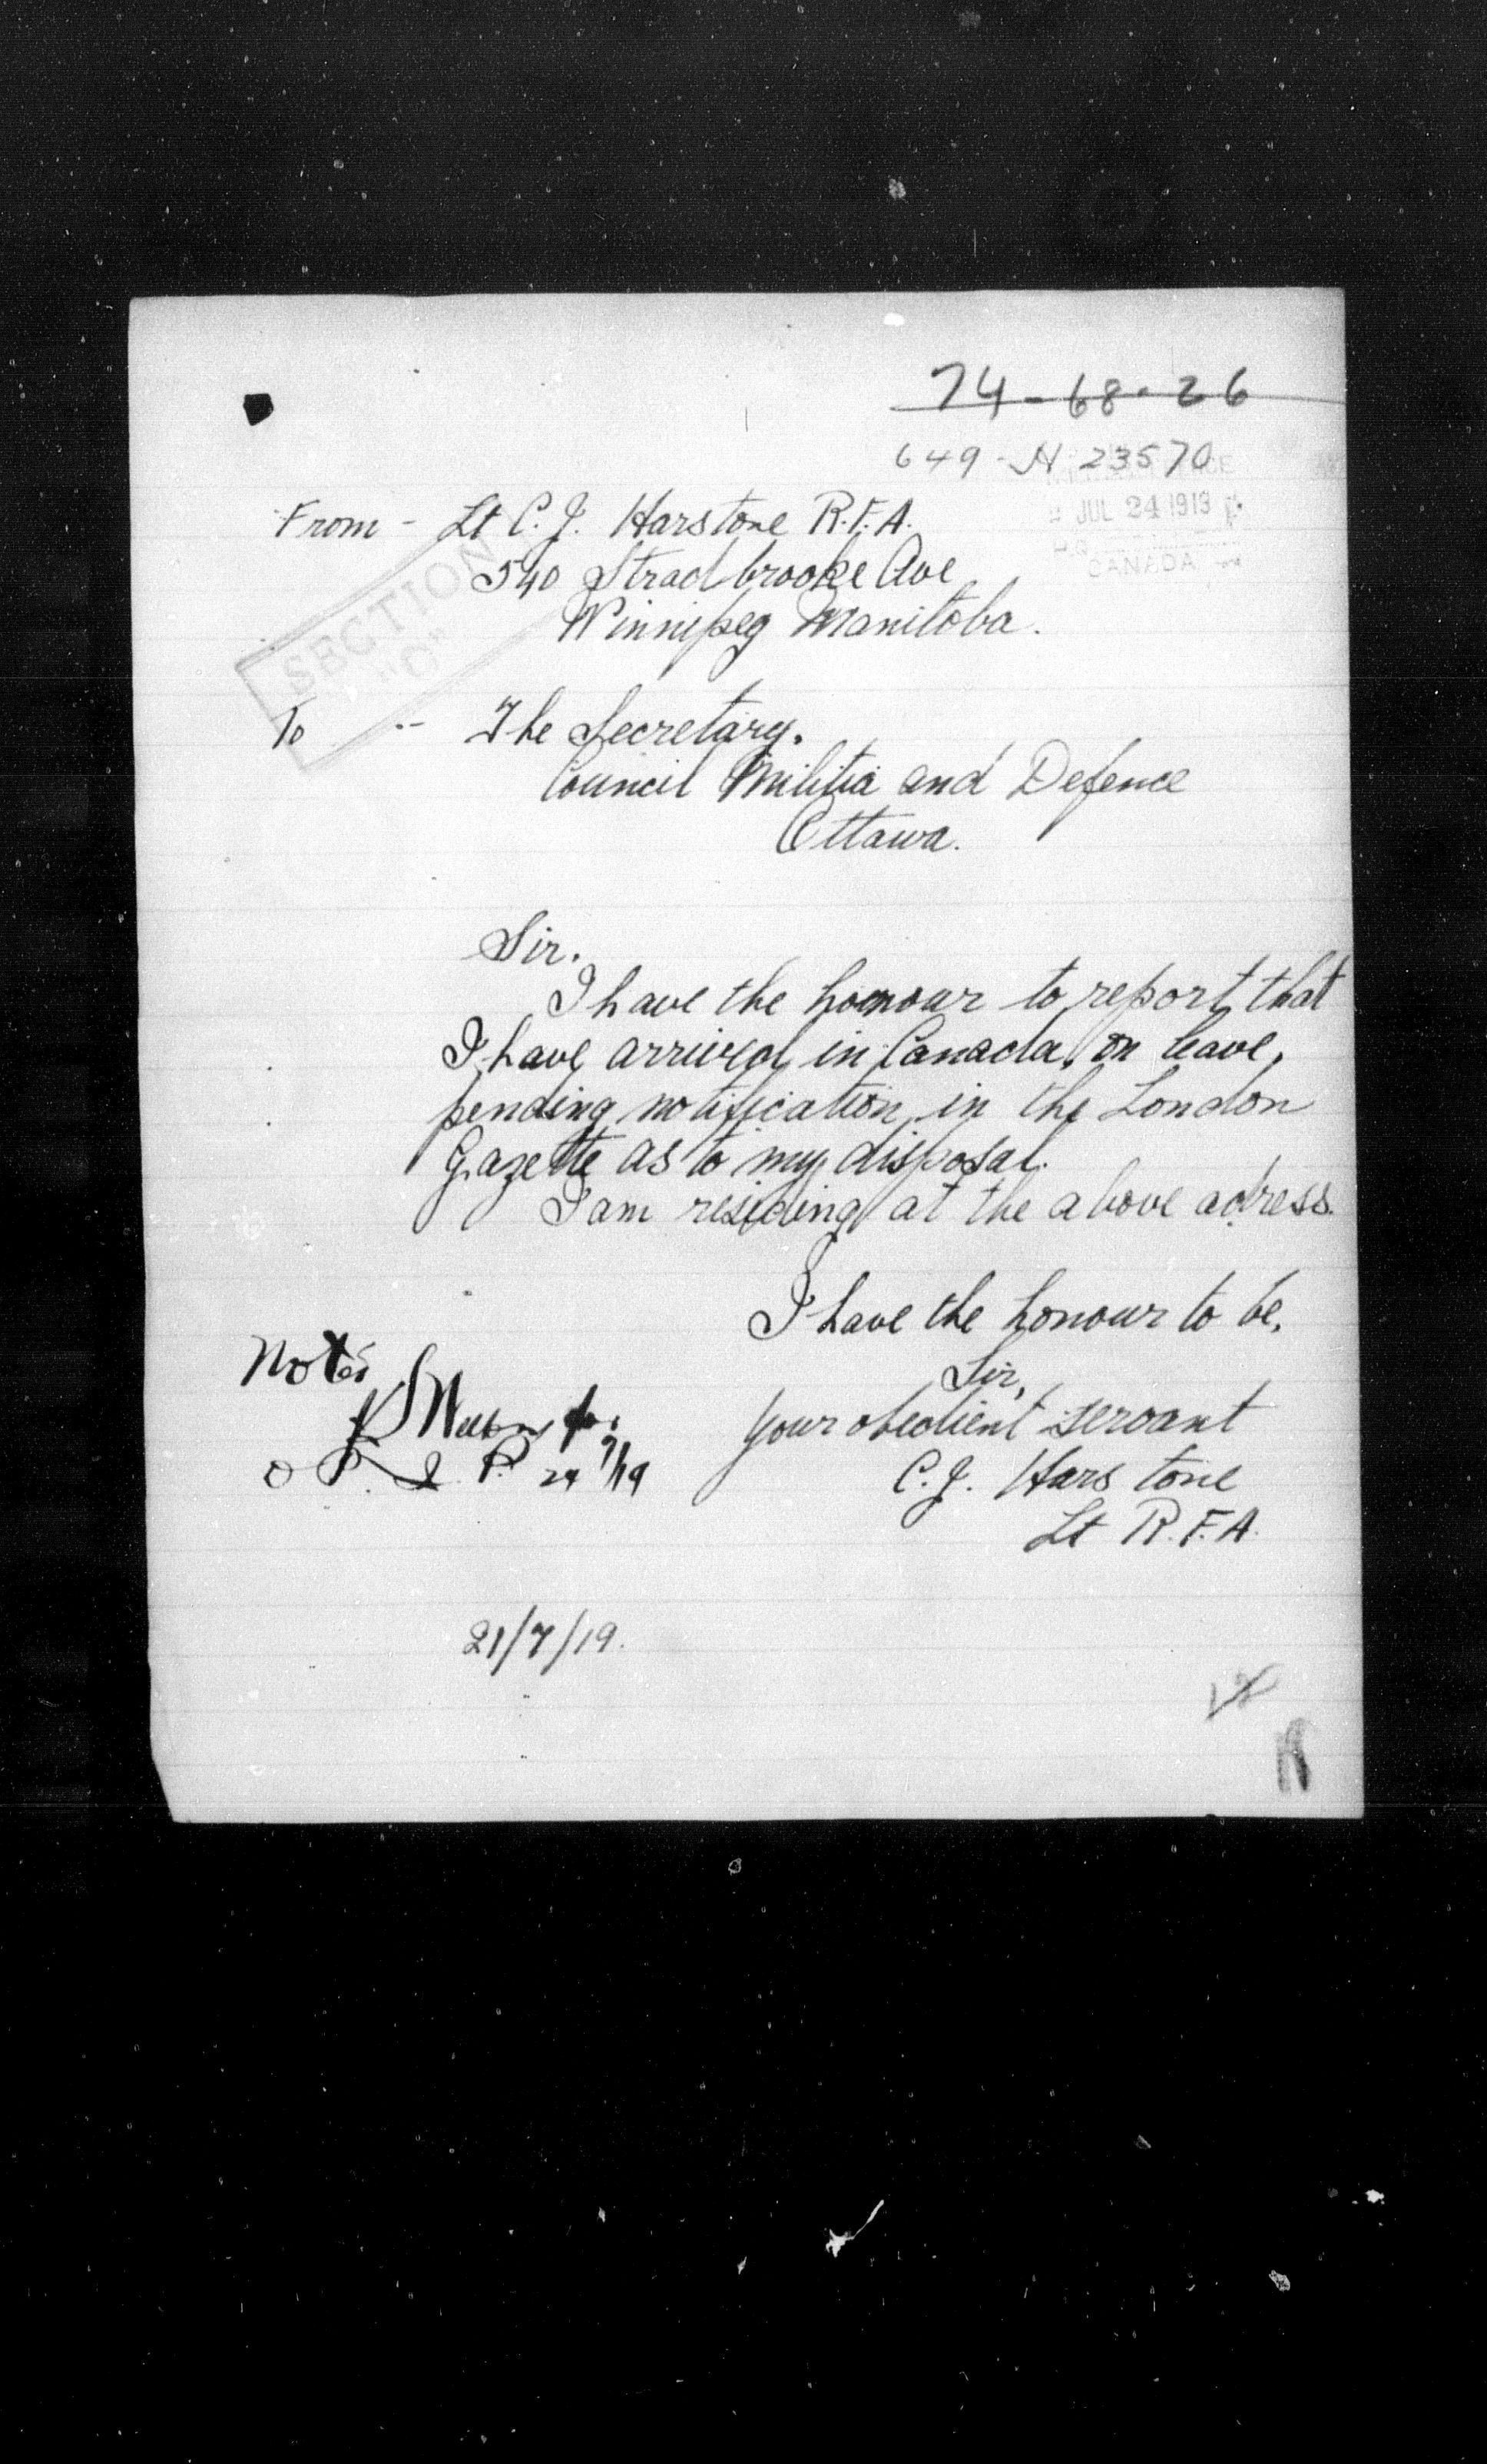 74-68-26
649-H 23570
JUL 24 1919
CANADA
From - Lt C. J. Harstone R.F.A.
540 Stradbrooke Ave
Winnipeg Manitoba.
SECTION
"O"
To -- The Secretary.
Council Militia and Defence
Ottawa.
Sir.
I have the honour to report that
I have arrived in Canada, on leave,
pending notification in the London
Gazette as to my disposal.
I am residing at the above adress.
I have the honour to be,
Sir,
your obedient servant
C. J. Harstone
Lt R.F.A.
Noted
21/7/19.